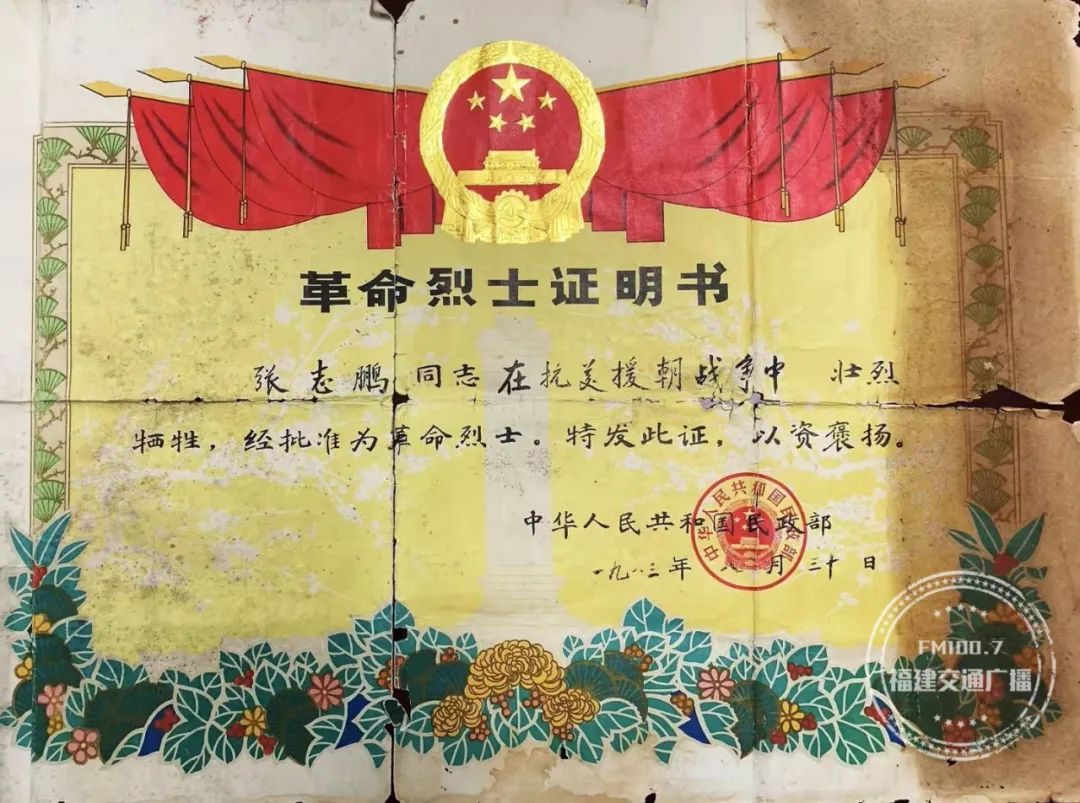 革命烈士证明书
张志鹏 同志 在抗美援朝战争中 壮烈
牺牲，经批准为革命烈士。特发此证，以资褒扬。
中华人民共和国民政部
中华人民共和国民政部
一九八三年 月三十日
FM100.7
福建交通广播